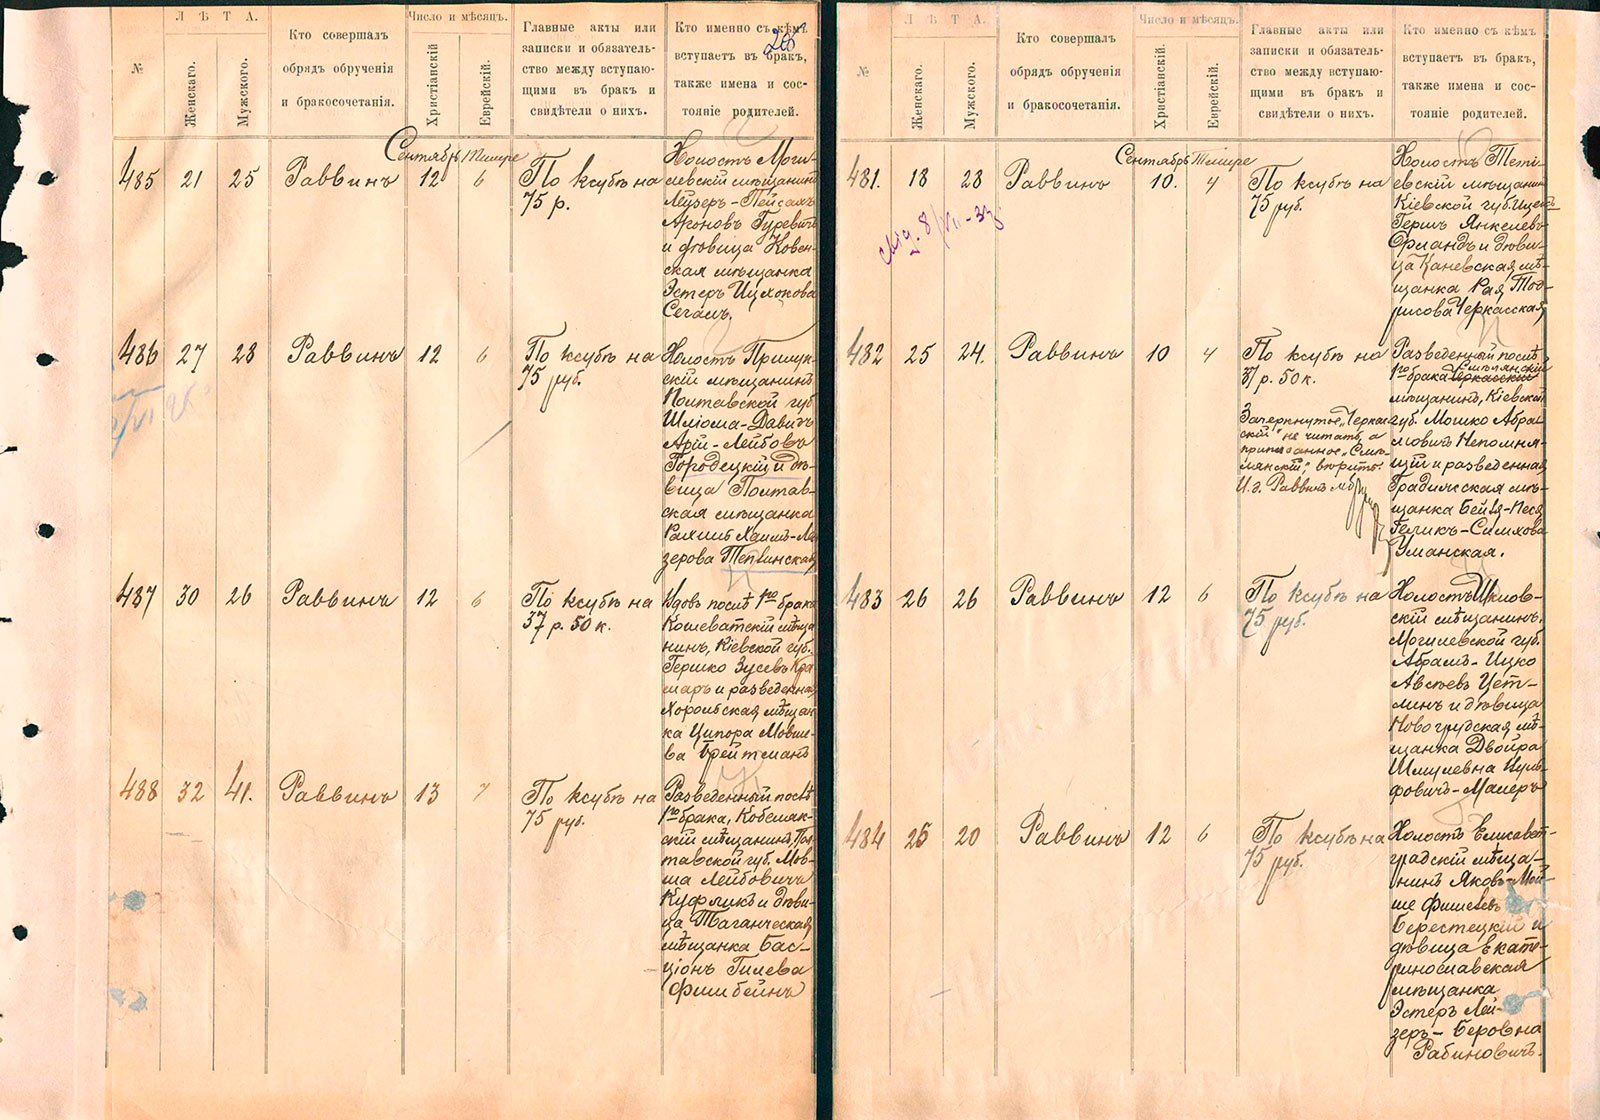 Л Ѣ Т А.
Число и мѣсяцъ.
№
Женскаго.
Мужского.
Кто совершалъ
обрядъ обрученія
и бракосочетанія.
Христіанскій
Еврейскій.
Главные акты или
записки и обязатель-
ство между вступаю-
щими въ бракъ и
свидѣтели о нихъ.
Кто именно съ кѣмъ
вступаетъ въ бракъ,
также имена и сос-
тояніе родителей.
Сентябрь Тишре
485 21 25 Раввинъ 12 6
По ксубѣ на
75 р.
Холостъ Моги-
левскій мѣщанинъ
Лейзеръ-Пейсахъ
Ароновъ Гуревичъ
и дѣвица Ковен-
ская мѣщанка
Эстеръ Ицхокова
Сегалъ.
486 27 28 Раввинъ 12 6
По ксубѣ на
75 руб.
Холостъ Прилук-
скій мѣщанинъ
Полтавской губ.
Шліома-Давидъ
Арій-Лейбовъ
Городецкій и дѣ-
вица Полтав-
ская мѣщанка
Рахиль Хаимъ-Ла-
зерова Теплинская
487 30 26 Раввинъ 12 6
По ксубѣ на
37 р. 50 к.
Вдовъ послѣ 1го брака
Кошеватскій мѣща
нинъ, Кіевской губ.
Гершко Зусевъ Кра
маръ и разведенная
Хороибская мѣщан
ка Ципора Мовше-
ва Брейтманъ
488 32 41. Раввинъ 13 7
По ксубѣ на
75 руб.
Разведенный послѣ
1го брака, Кобеляк-
скій мѣщанинъ, Пол
тавской губ. Мов-
ша Лейбовичъ
Куфликъ и дѣви-
ца Таганческая
мѣщанка Бас-
ціонъ Гилева
Фишбейнъ
Л Ѣ Т А.
Число и мѣсяцъ.
№
Женскаго.
Мужского.
Кто совершалъ
обрядъ обрученія
и бракосочетанія.
Христіанскій.
Еврейскій.
Главные акты или
записки и обязатель-
ство между вступаю-
щими въ бракъ и
свидѣтели о нихъ.
Кто именно съ кѣмъ
вступаетъ въ бракъ,
также имена и сос-
тояніе родителей.
Сентябрь Тишре
481. 18 28 Раввинъ 10. 4
По ксубѣ на
75 руб.
Холостъ Теті-
евскій мѣщанинъ
Кіевской губ. Ицекъ
Гершъ Янкелевъ
Орландъ и дѣви-
ца Каневская мѣ-
щанка Рая Тод-
рисова Черкасская
482 25 24. Раввинъ 10 4
По ксубѣ на
37 р. 50 к.
Зачеркнутое "Черкас
скій" не читать, а
приписанное "Смѣ-
лянскій", вѣрить.
И. д. Раввинъ
Разведенный послѣ
Смѣлянскій
1го брака Черкасскій
мѣщанинъ, Кіевской
губ. Мошко Абра
мовичъ Непомня-
щій и разведенная
Градижская мѣ-
щанка Бейля-Песя
Геликъ-Симхова
Уманская.
483 26 26 Раввинъ 12 6
По ксубѣ на
75 руб.
Холостъ Шкловъ-
скій мѣщанинъ,
Могилевской губ.
Абрамъ-Ицко
Авсѣевъ Цет-
линъ и дѣвица
Новогрудская мѣ-
щанка Двойра
Шмулевна Куль-
фовичъ-Малеръ
484 25 20 Раввинъ 12 6
По ксубѣ на
75 руб.
Холостъ Елисавет-
градскій мѣща-
нинъ Яковъ-Мой-
ше Фишелевъ
Берестецкій и
дѣвица Екате-
ринославская
мѣщанка
Эстеръ Лей-
зеръ-Беровна
Рабиновичъ.